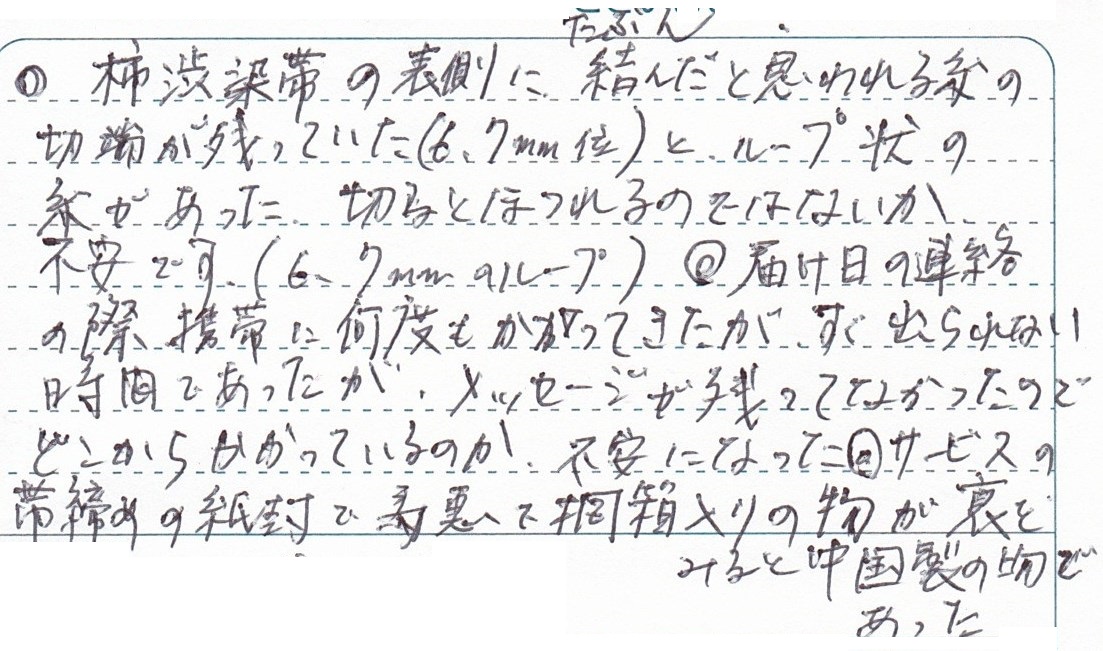 たぶん
① 柿渋染帯の表側に、結んだと思われる糸の
切端が残っていた(6、7mm位)と、ループ状の
糸があった。切るとほつれるのではないか、
不安です。(6、7mmのループ) ②届け日の連絡
の際、携帯に何度もかかってきたが、すぐ出られない
時間であったが、メッセージが残ってなかったので
どこからかかっているのか、不安になった③サービスの
帯締めの紙封で 桐箱入りの物が裏を
みると中国製の物で
あった